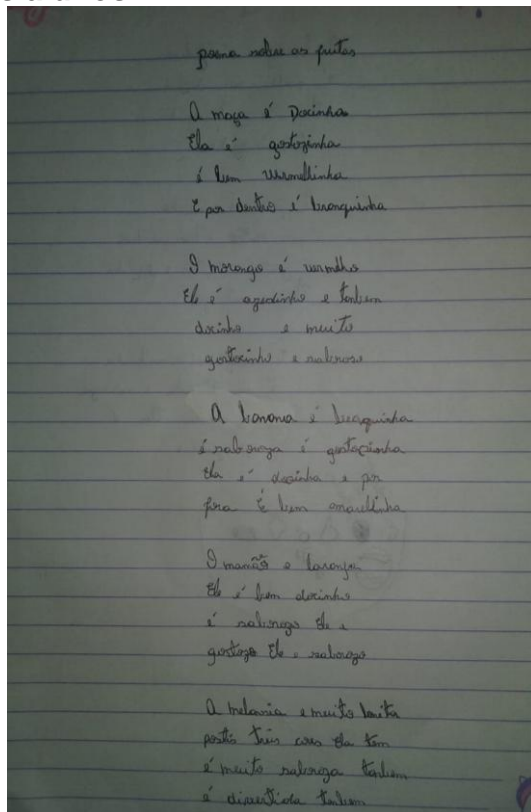 poema sobre as frutas
A maça é Docinha
Ela é gostozinha
é bem vermelhinha
E por dentro é branquinha
O morango é vermelho
Ele é azedinho e tanbem
docinho e muito
gostosinho e saboroso
A banana é
é saboroza é gostoçinha
Ela é docinha e por
fora É bem amarelinha
O mamão e laranja
Ele é bem docinho
é saborozo Ele e
gostozo Ele e saborozo
A melancia e muito bonita
três cores Ela tem
é muito saboroza tanbem
é divertida tanbem